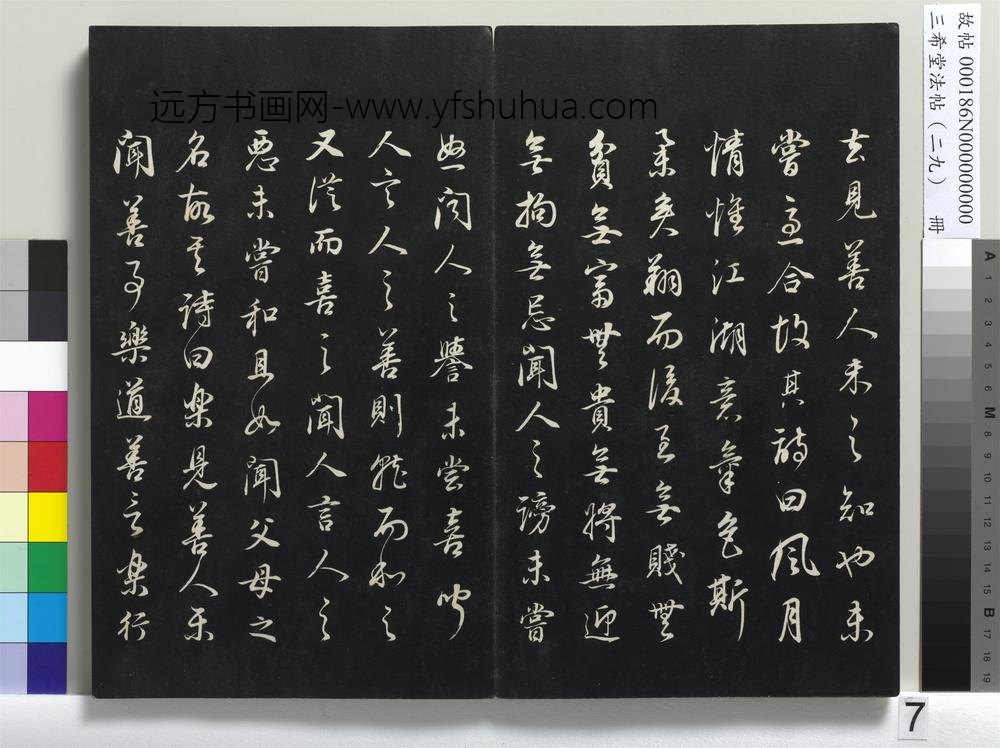 去見善人未之知也未
嘗急合故其詩曰風月
情懷江湖意氣色斯
其舉翔而後至無賤無
貧無富無貴無將無迎
無拘無忌聞人之謗未嘗
怒聞人之譽未嘗喜聞
人言人之善則就而和之
又從而喜之聞人言人之
惡未嘗和且如聞父母之
名故其詩曰樂見善人樂
聞善事樂道善言樂行
远方书画网-www.yfshuhua.com
故帖 000186N000000000
三希堂法帖(二九) 冊
A 1 2 3 4 5 6 M 8 9 10 11 12 13 14 15 B 17 18 19
7